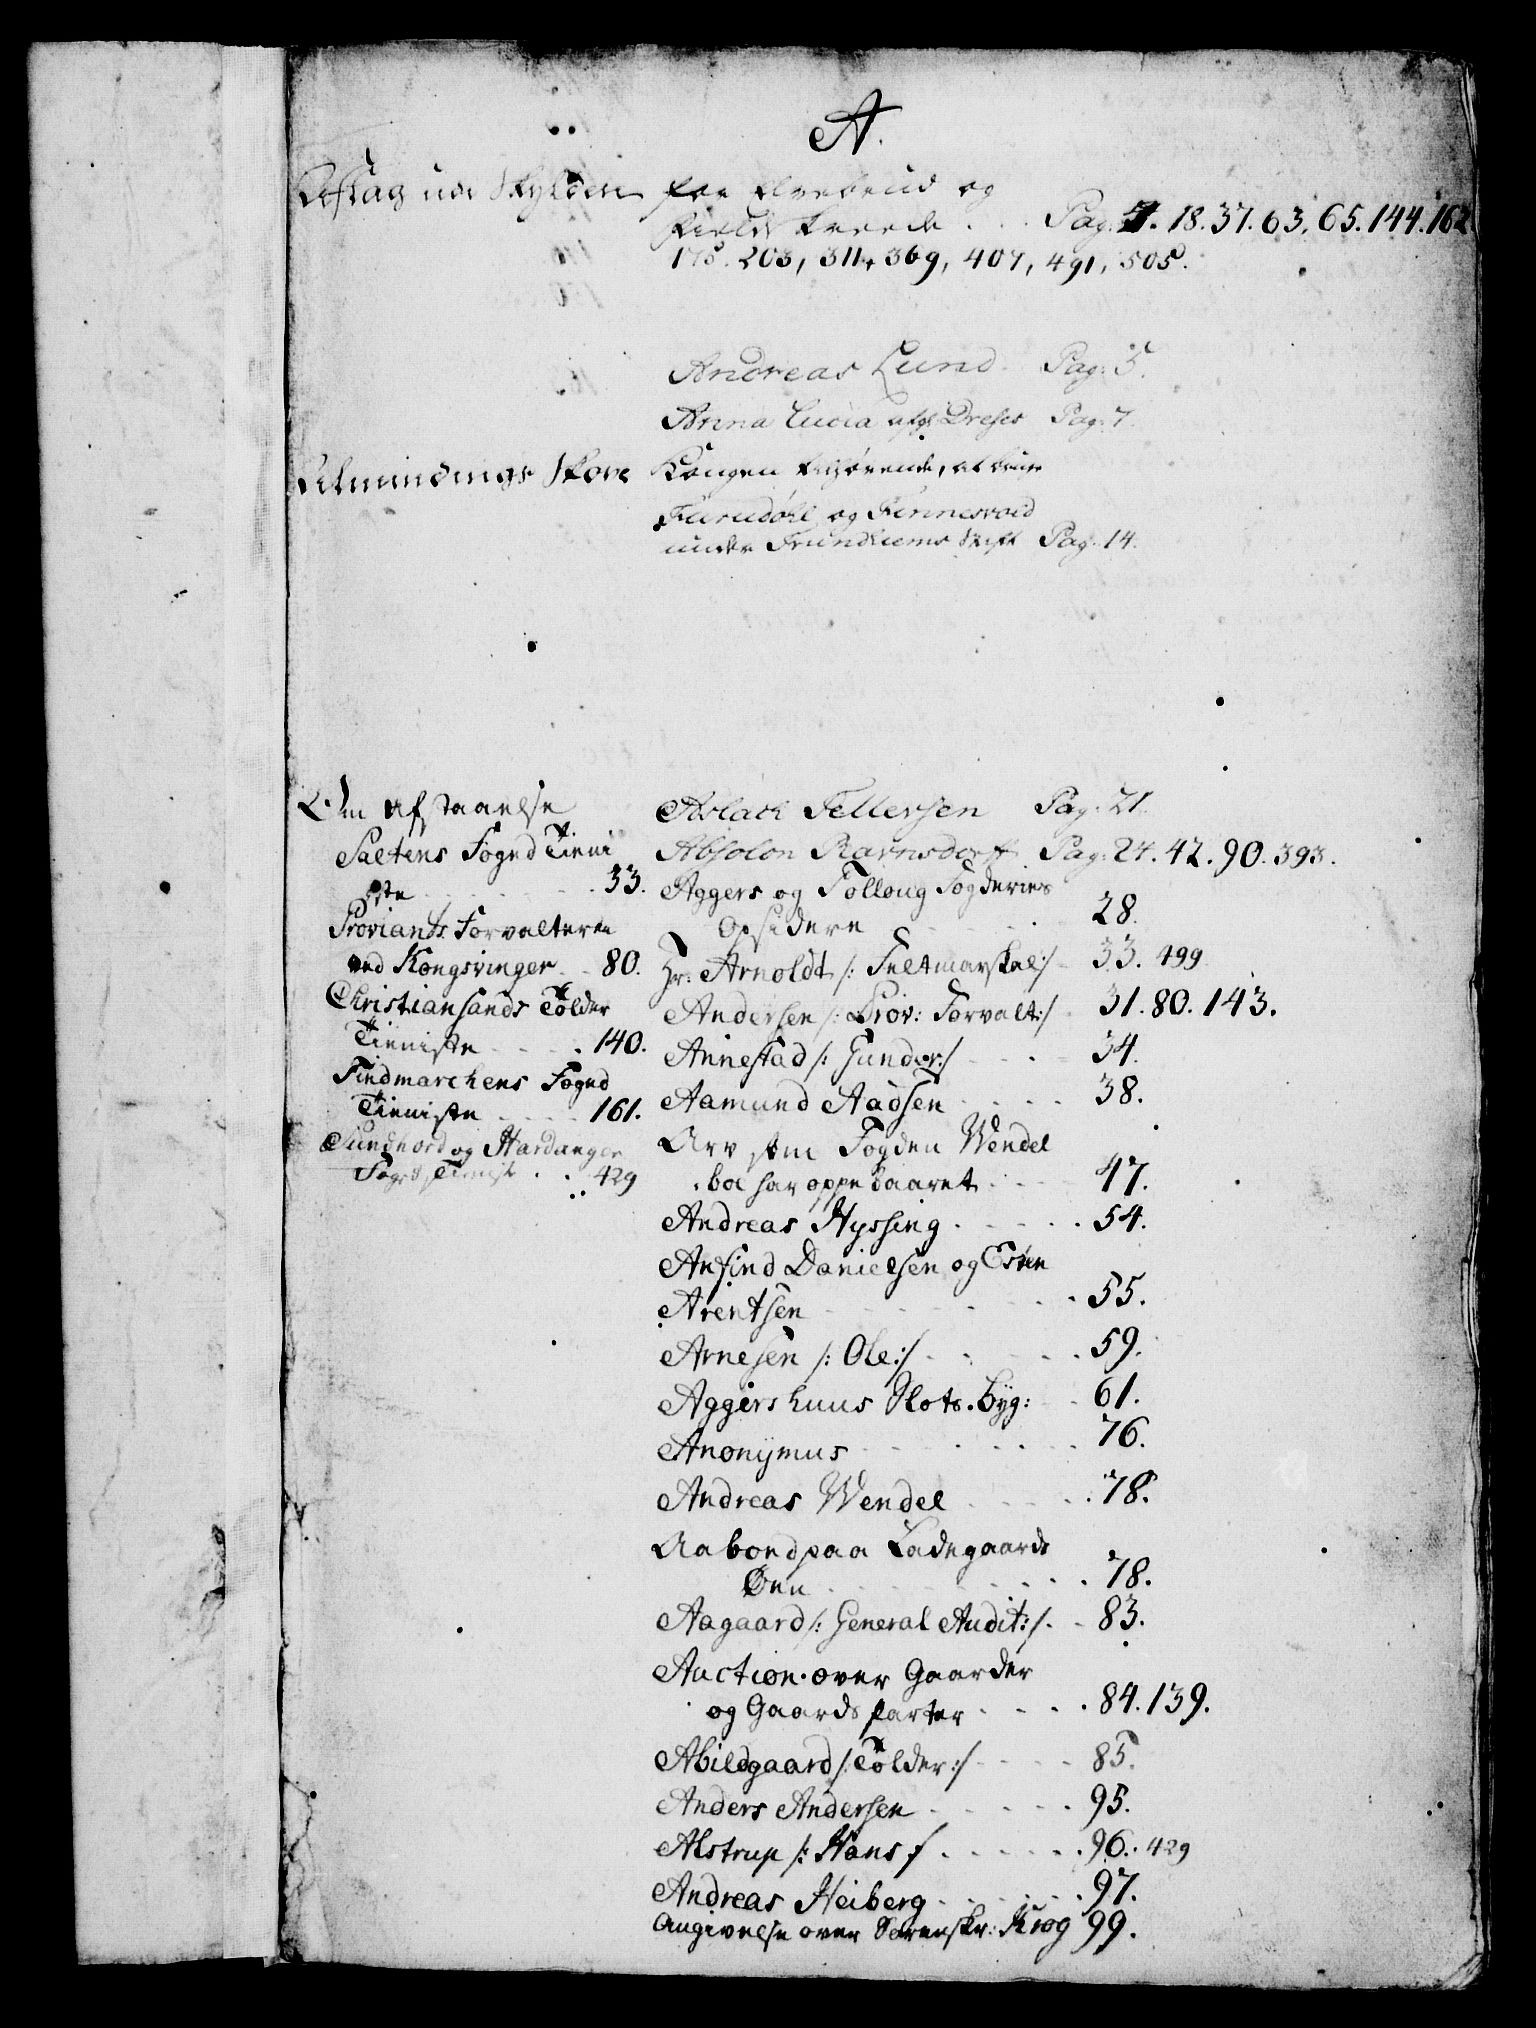 A.
Afslag udi Skylden for Elvebrud og
Field Skreede . . . Pag: 7. 18. 37. 63. 65. 144. 162
175. 203, 311, 369, 407, 491, 505.
Andreas Lund Pag: 5.
Anna Lucia afg: Dreyes Pag: 7.
Almindings Skove Kongen tilhørende,
Furudahl og Finnesvoid
under Trundhiems Stift Pag: 14.
Om afstaaelse
Saltens Fogd Tieni
ste . . . 33.
Proviants Forvalteren
ved Kongsvinger . . 80.
Christiansands Tolder
Tieniste . . . 140.
Findmarchens Fogd
Tieniste . . . 161.
Sundhord og Hardanger
Fogd Tienist . . 429
Aslach Tellersen Pag: 21.
Absolon Ravnsdorff Pag: 24. 42. 90. 393.
Aggers og Folloug Fogderies
Opsidere . . . 28.
Hr: Arnoldt /: Feltmarskal :/ 33. 499
Andersen /: Prov: Forvalt :/ 31. 80. 143.
Annestad /: Gunder :/ . . . 34.
Aamund Aadsen . . . 38.
Arv som Fogden Wendel
boe har oppebaaret . . . 47.
Andreas Hyssing . . . 54.
Anfind Danielsen og Esten
Arentsen . . . 55.
Arnesen /: Ole :/ . . . 59.
Aggershuus Slots. Byg: . . 61.
Anonymus . . . 76.
Andreas Wendel . . . 78.
Aabond paa Ladegaards
Øen . . . 78.
Aagaard /: General Audit: :/ . . 83.
Auction over Gaarder
og Gaards parter . . . 84. 139.
Abildgaard /: Tolder :/ . . . 85.
Anders Andersen . . . 95.
Alstrup /: Hans / . . . 96. 429
Andreas Heiberg . . . 97.
Angivelse over Sorenskr: Krog 99.